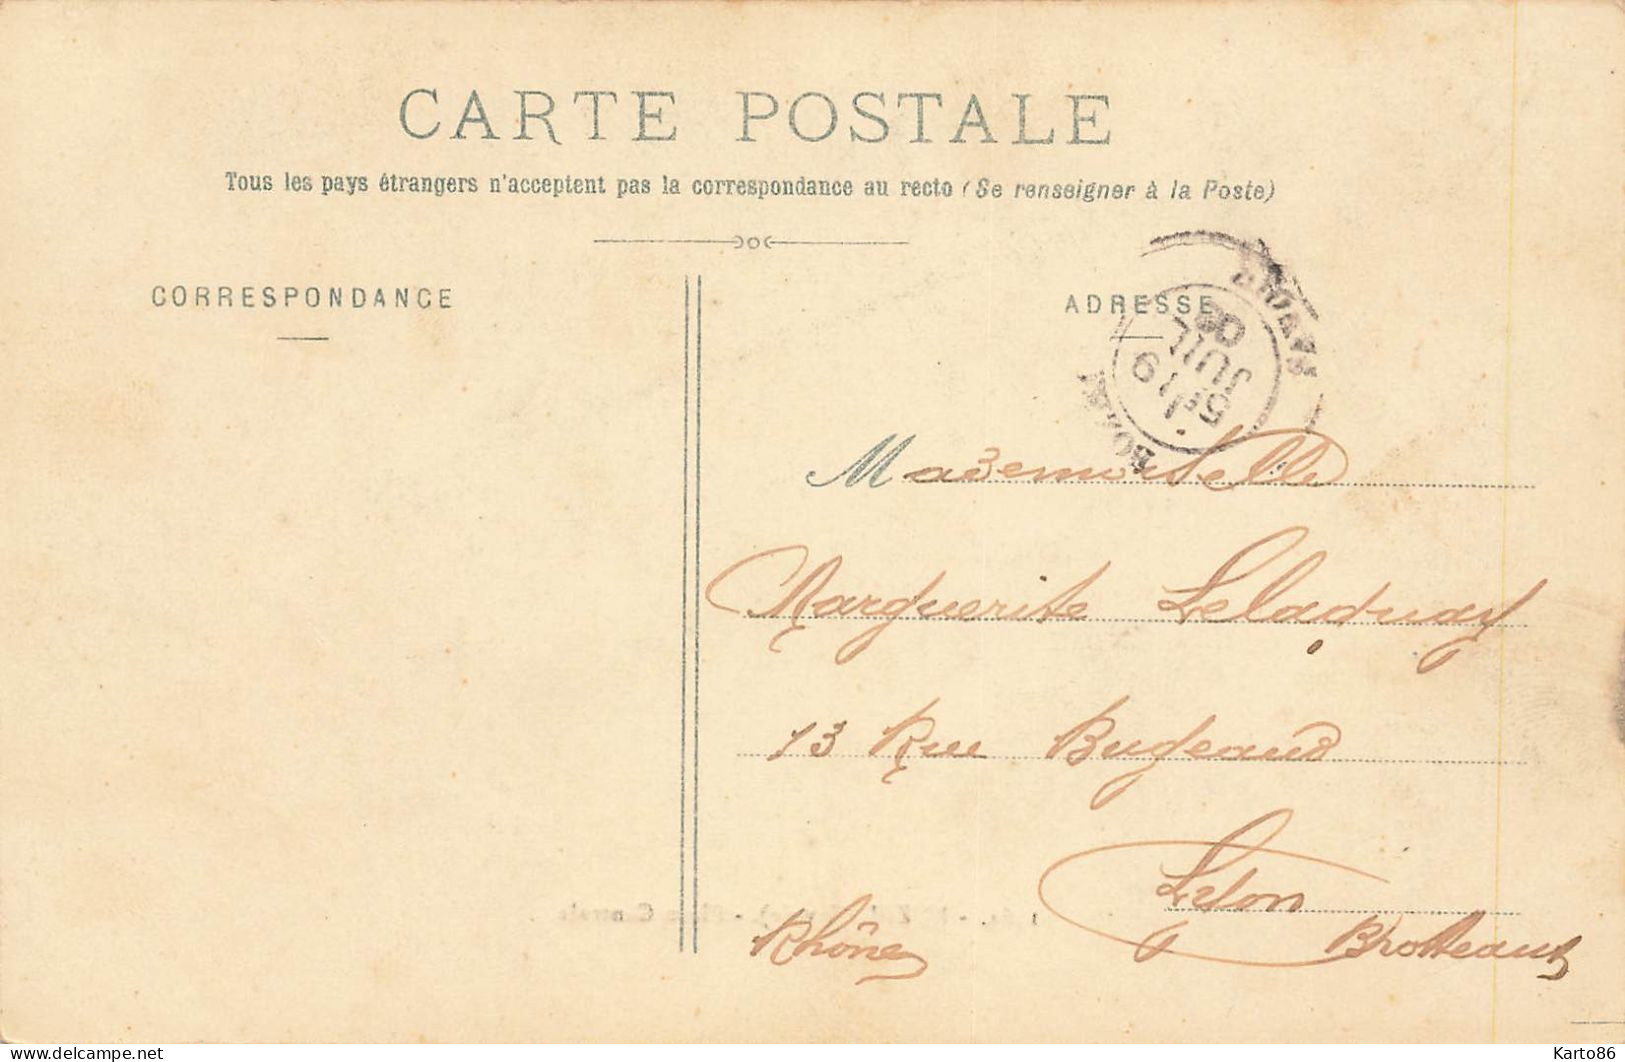 CARTE POSTALE
Tous les pays étrangers n'acceptent pas la correspondance au recto (Se renseigner à la Poste)
CORRESPONDANCE
ADRESSE
JUIL
Mademoiselle
Marguerite
13 Rue Bugeaud
Lyon
Rhône Brotteaux
delcampe.net
Karto86